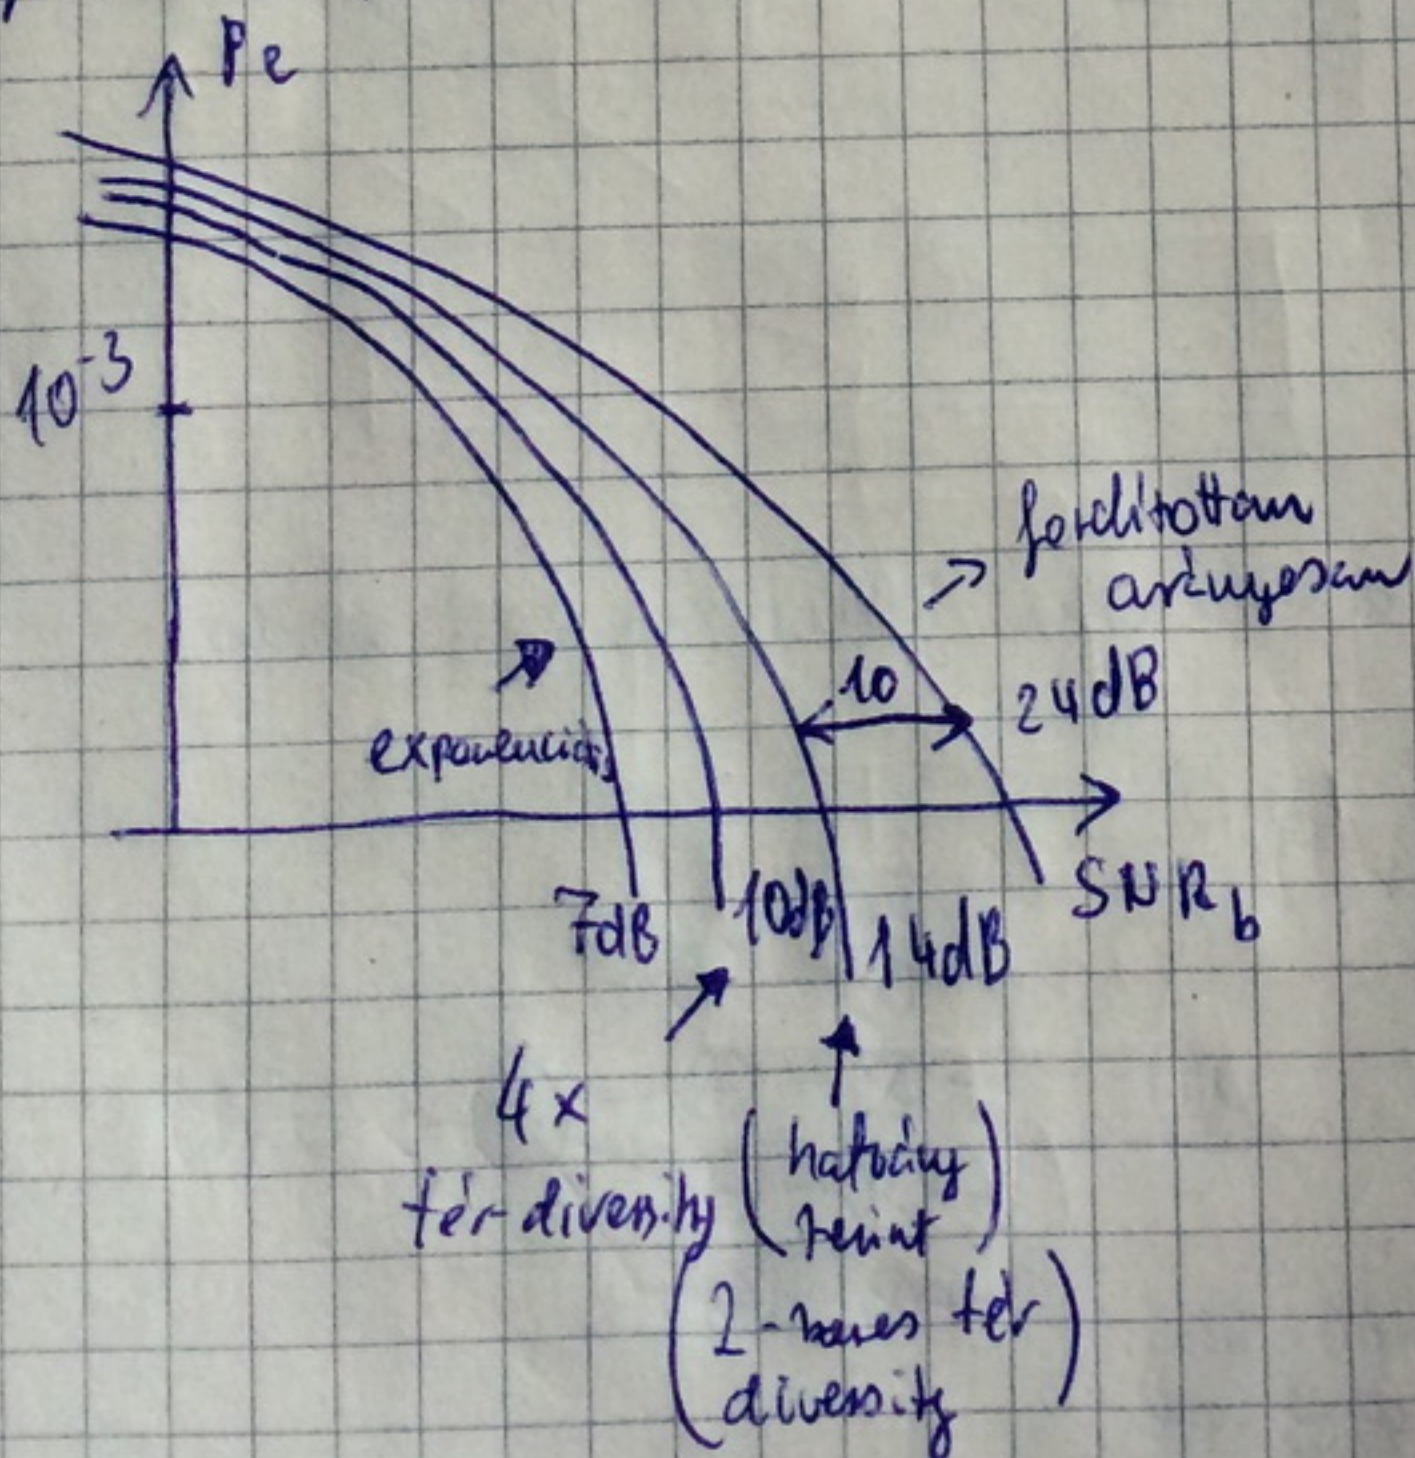 Pe
10^-3
fordítottan
arányosan
10
24dB
exponenciális
SNR_b
7dB
10dB
14dB
4x
tér-diversity
(hatvány
szerint)
(2-szeres tér
diversity)